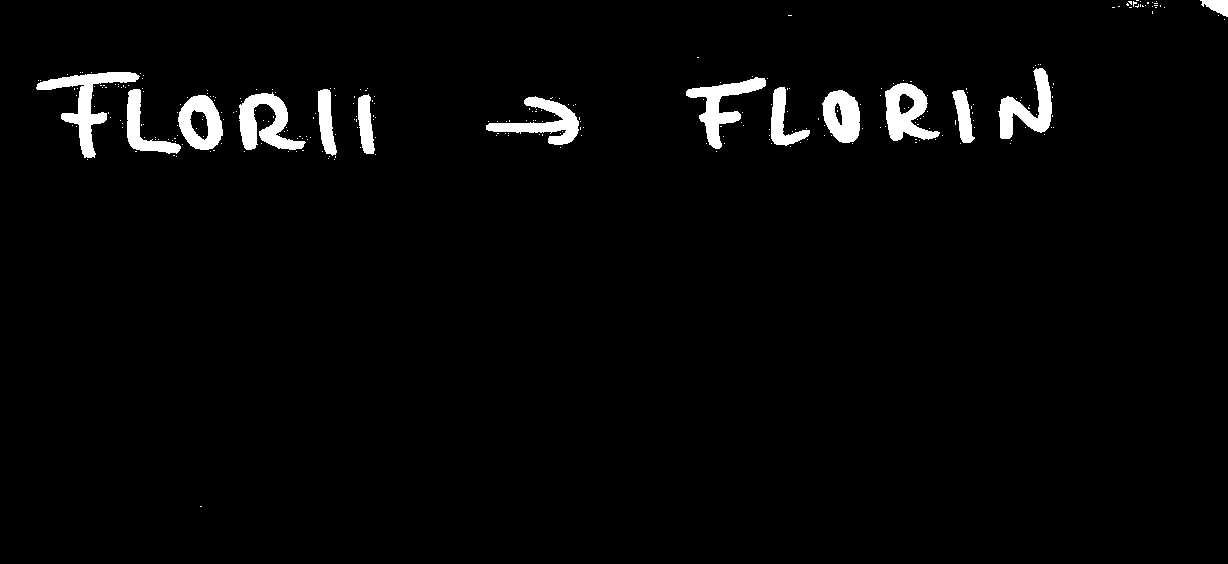 FLORII → FLORIN